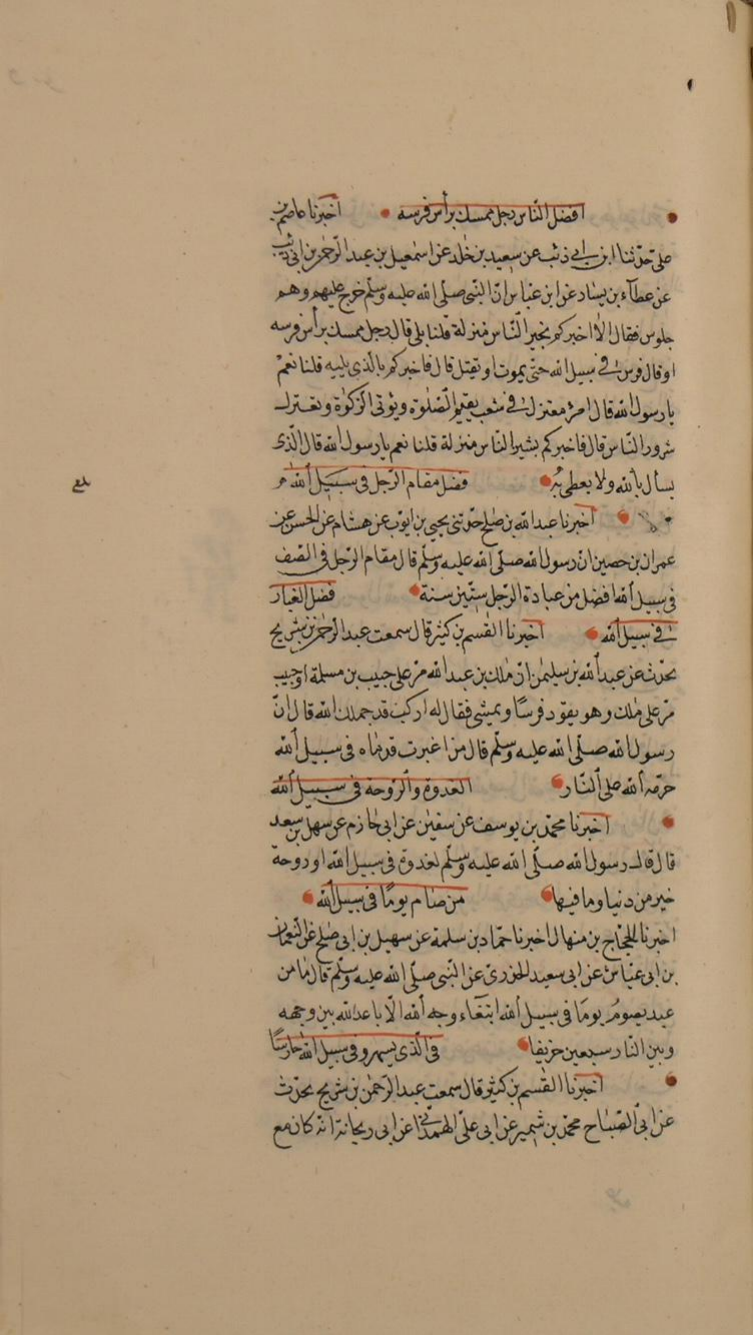 افضل الناس رجل ممسك برأس فرسه اخبرنا عاصم بن
على حدثنا ابن ابى ذئب عن سعيد بن خلد عن اسمعيل بن عبد الرحمن بن ابى ذئب
عن عطاء بن يسار عن ابن عباس ان النبى صلى الله عليه وسلم خرج عليهم وهم
جلوس فقال الا اخبركم بخير الناس منزلة قلنا بلى قال رجل ممسك برأس فرسه
او قال فرس فى سبيل الله حتى يموت او يقتل قال فاخبركم بالذى يليه قلنا نعم
يا رسول الله قال امرؤ معتزل فى شعب يقيم الصلوة ويؤتى الزكوة ويعتزل
شرور الناس قال فاخبركم بشير الناس منزلة قلنا نعم يا رسول الله قال الذى
يسأل بالله ولا يعطى به فضل مقام الرجل فى سبيل الله
اخبرنا عبد الله بن صلح حدثنى يحيى بن ايوب عن هشام عن الحسن عن
عمران بن حصين ان رسول الله صلى الله عليه وسلم قال مقام الرجل فى الصف
فى سبيل الله افضل من عبادة الرجل ستين سنة فضل الغبار
فى سبيل الله اخبرنا القسم بن كثير قال سمعت عبد الرحمن بن شريح
يحدث عن عبد الله بن سليمن ان ملك بن عبد الله مر على حبيب بن مسلمة او حبيب
مر على ملك وهو يقود فرسا ويمشى فقال له اركب قد حملك الله قال ان
رسول الله صلى الله عليه وسلم قال من اغبرت قدماه فى سبيل الله
حرمه الله على النار الغدوة والروحة فى سبيل الله
اخبرنا محمد بن يوسف عن سفين عن ابى حازم عن سهل بن سعد
قال قال رسول الله صلى الله عليه وسلم لغدوة فى سبيل الله او روحة
خير من دنيا وما فيها من صام يوما فى سبيل الله
اخبرنا الحجاج بن منهال اخبرنا حماد بن سلمة عن سهيل بن ابى صلح عن النعمان
بن ابى عياش عن ابى سعيد الخدرى عن النبى صلى الله عليه وسلم قال ما من
عبد يصوم يوما فى سبيل الله ابتغاء وجه الله الا باعد الله بين وجهه
وبين النار سبعين خريفا فى الذى يسهر فى سبيل الله حارسا
اخبرنا القسم بن كثير قال سمعت عبد الرحمن بن شريح يحدث
عن ابى الصباح محمد بن شمير عن ابى على الهمدانى عن ابى ريحانة انه كان مع